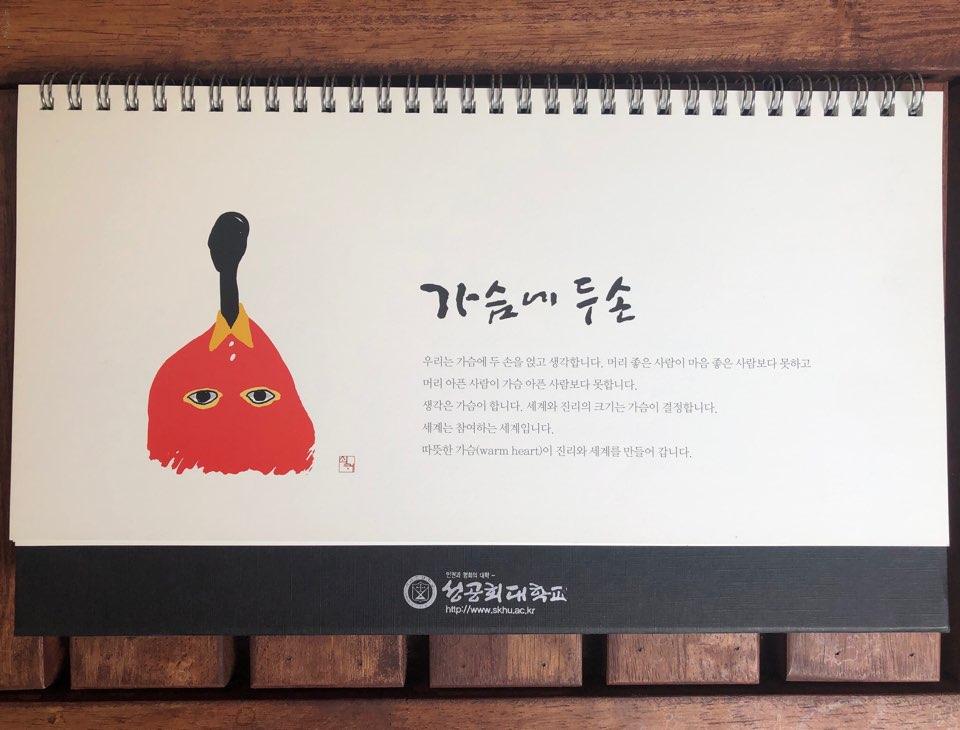 가슴에 두손
우리는 가슴에 두 손을 얹고 생각합니다. 머리 좋은 사람이 마음 좋은 사람보다 못하고
머리 아픈 사람이 가슴 아픈 사람보다 못합니다.
생각은 가슴이 합니다. 세계와 진리의 크기는 가슴이 결정합니다.
세계는 참여하는 세계입니다.
따뜻한 가슴(warm heart)이 진리와 세계를 만들어 갑니다.
인권과 평화의 대학 –
성공회대학교
http://www.skhu.ac.kr